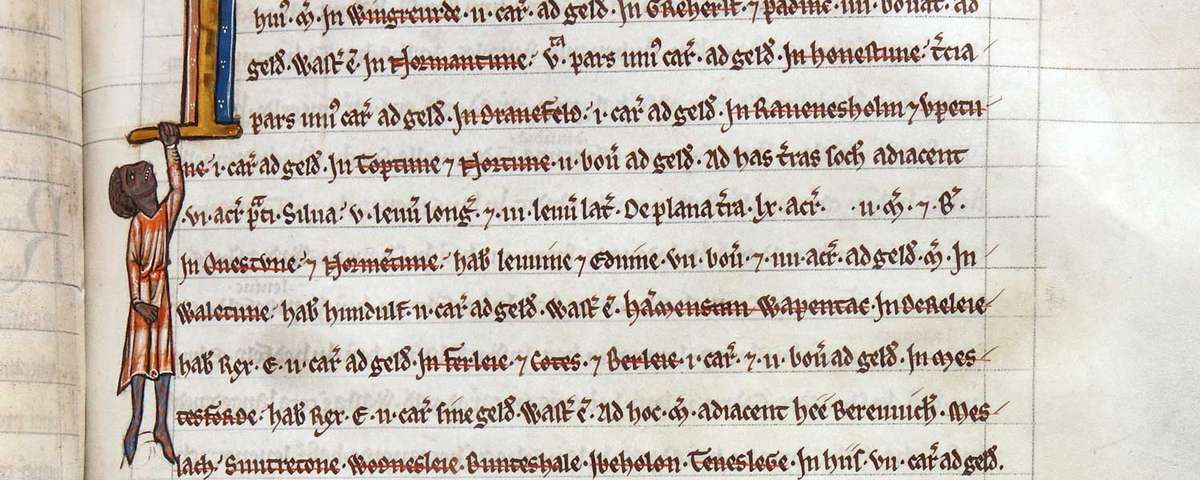 huiꝰ m̃. In Wingreurde. ii. car̃. ad geld. In Greherst. ⁊ Padinc. iiii. bouat. ad
geld̃. Wast̃ ẽ. In Normantune. v.ta pars uniꝰ car̃. ad geld̃. In honestune. t̃cia
pars uniꝰ car̃ ad geld̃. In Dranefeld. i. car̃ ad geld̃. In Rauenesholm ⁊ Vpetu
ne. i. car̃ ad geld̃. In Toptune ⁊ Nortune. ii. boũ ad geld̃. Ad has t̃ras soch adiacent
.vi. acr̃ p̃ti. Silua. v. leuũ long̃. ⁊. iii. leuũ lat̃. De plana t̃ra. lx. acr̃. .ii. m̃. ⁊. B̃.
In Onestune. ⁊ Normẽtune. hab̃ leuuine ⁊ Eduine. vii. boũ. ⁊. iiii. acr̃. ad geld̃. m̃. In
Waletune. hab̃ hundulf. ii. car̃ ad geld̃. Wast̃ ẽ. hãmenstan Wapentac. In Dereleie
hab̃ Rex. E. ii. car̃ ad geld̃. In Ferleie. ⁊ Cotes. ⁊ Berleie. i. car̃. ⁊. ii. boũ ad geld̃. In Mes
tesforde. hab̃ Rex. E. ii. car̃ sine geld̃. Wast̃ ẽ. Ad hoc. m̃. adiacent hee Bereuuich̃. Mes
lach. Sunretone. Wodnesleie. Bunteshale. Ibeholon. Teneslege. In hiis. vii. car̃ ad geld̃.